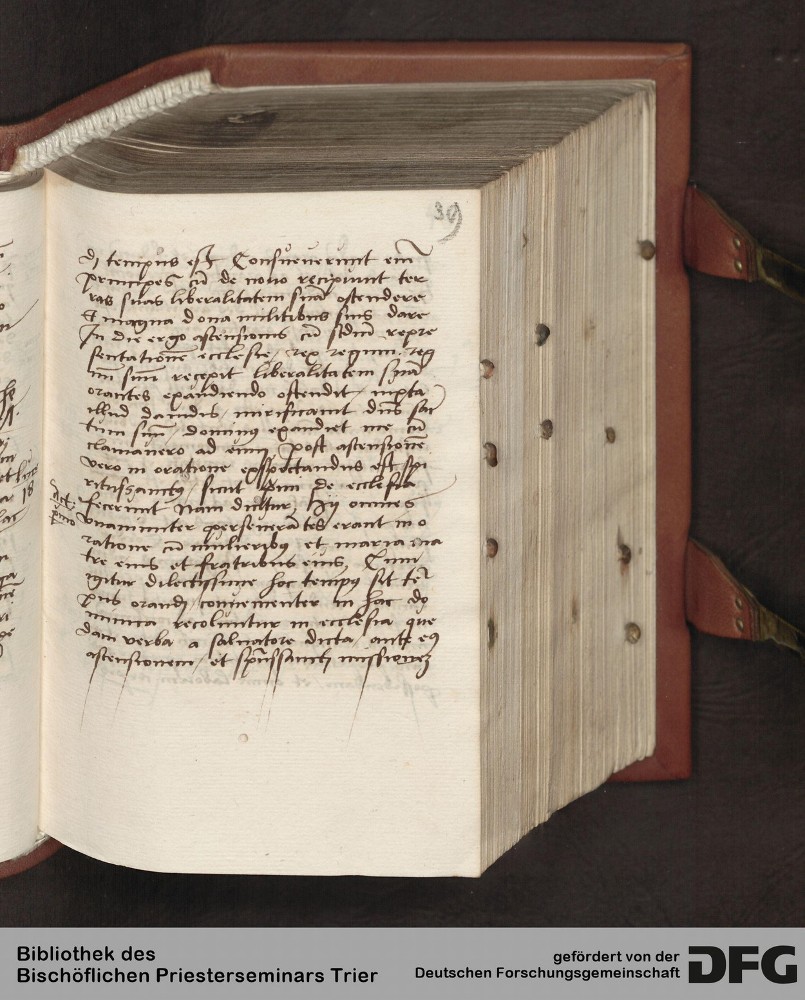 39
di tempus est Consueuerunt eni̅
principes cu̅ de nouo recipiunt ter
ras suas liberalitatem sua̅ ostendere
Et magna dona militibus suis dare
In die ergo ascensionis cu̅ repre
sentatione̅ ecclesie, rex regum
suu̅ recepit liberalitatem sua̅
orantes exaudiendo ostendit, iuxta
illud dauidis, mirificauit dn̅s sac
tum suu̅, dominus exaudiet me cu̅
clamauero ad eum, post ascensione̅
vero in oratione expectandus est spi
ritussanctus, sicut de ecclesia
fecerunt Nam dicitur, Hij omnes
vnanimiter persevera̅tes erant in o
ratione cu̅ mulieribus et maria ma
tre eius et fratribus eius, Cum
igitur dilectissime hoc tempus sit te̅
pus orandj, conuenienter in hac do
minica recoluntur in ecclesia que
dam verba a saluatore dicta, ante eius
ascensionem, et sp̅ussanctj missionem
Act.
primo
18
Bibliothek des
Bischöflichen Priesterseminars Trier
gefördert von der
Deutschen Forschungsgemeinschaft
DFG